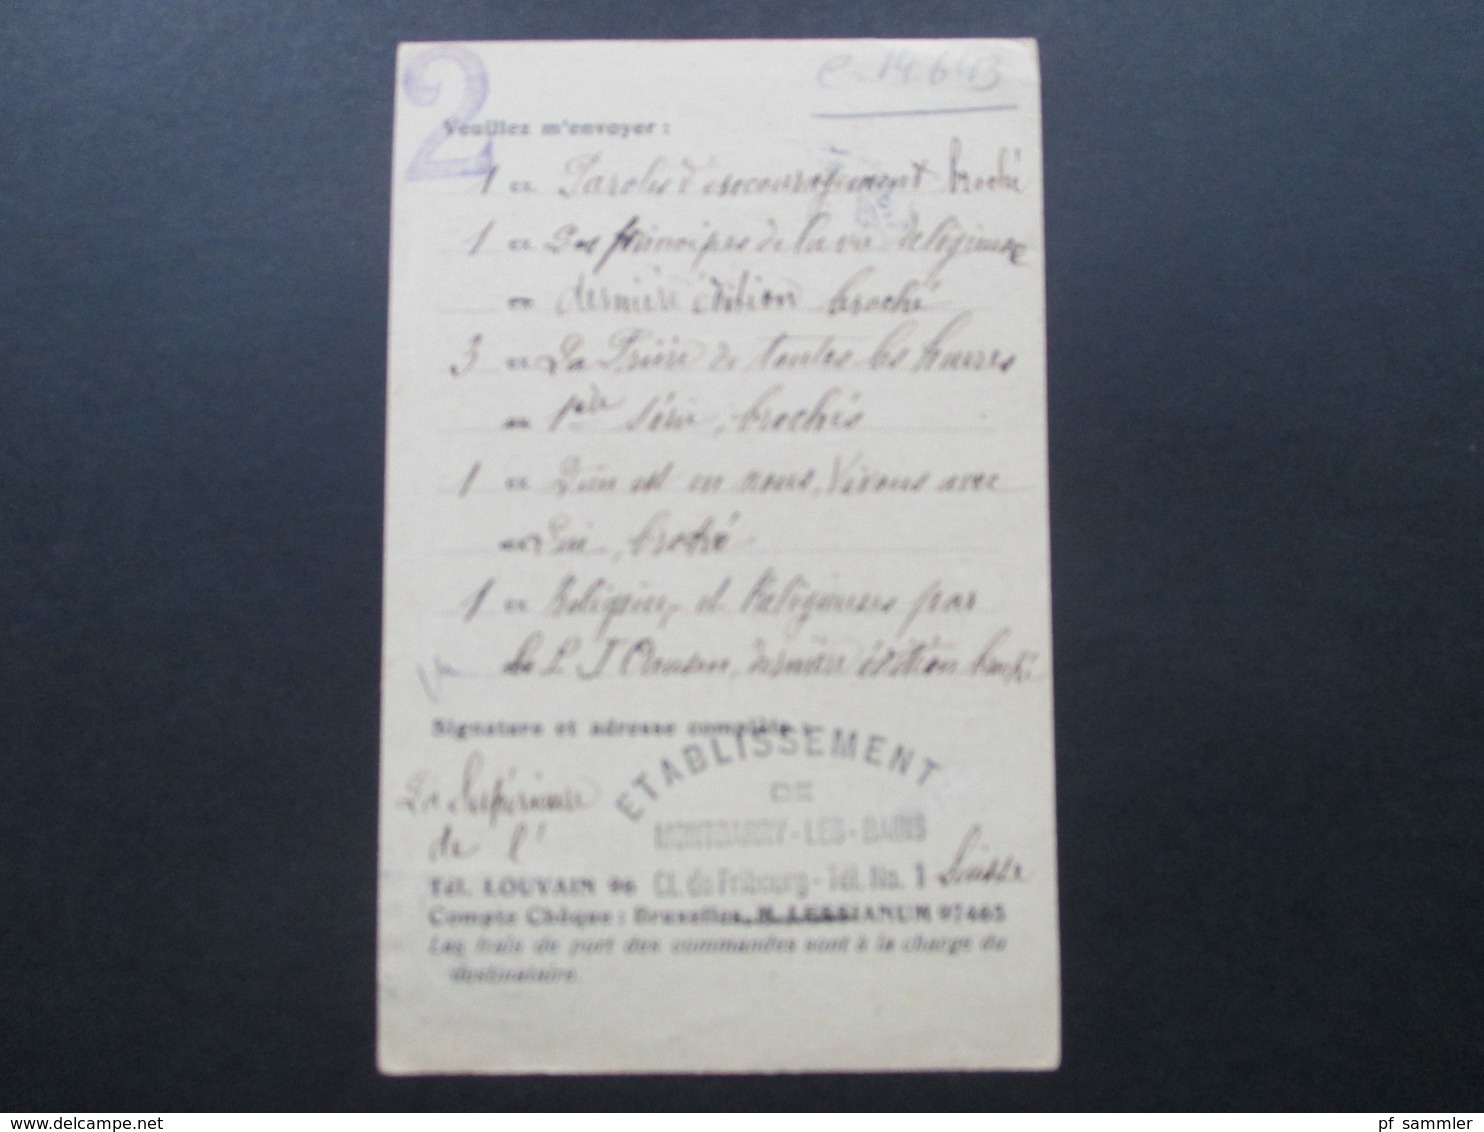 2
e. 14.643
Veuillez m'envoyer :
1 " Paroles d'encouragement broché
1 " Des principes de la vie religieuse
" dernière édition broché
3 " La Prière de toutes les heures
" 1ère série, brochés
1 " Dieu est en nous, Vivons avec
" Lui, broché
1 " Religion, et Religieuses par
le P. J. dernière édition broché
Signature et adresse complète :
La Supérieure
de l'
ETABLISSEMENT
DE
MONTBARRY-LES-BAINS
Ct. de Fribourg - Tél. No. 1 Suisse
Tél. LOUVAIN 96
Compte Chèque : Bruxelles, M. LESSIANUM 97465
Les frais de port des commandes sont à la charge du
destinataire.
pf_sammler
www.delcampe.net